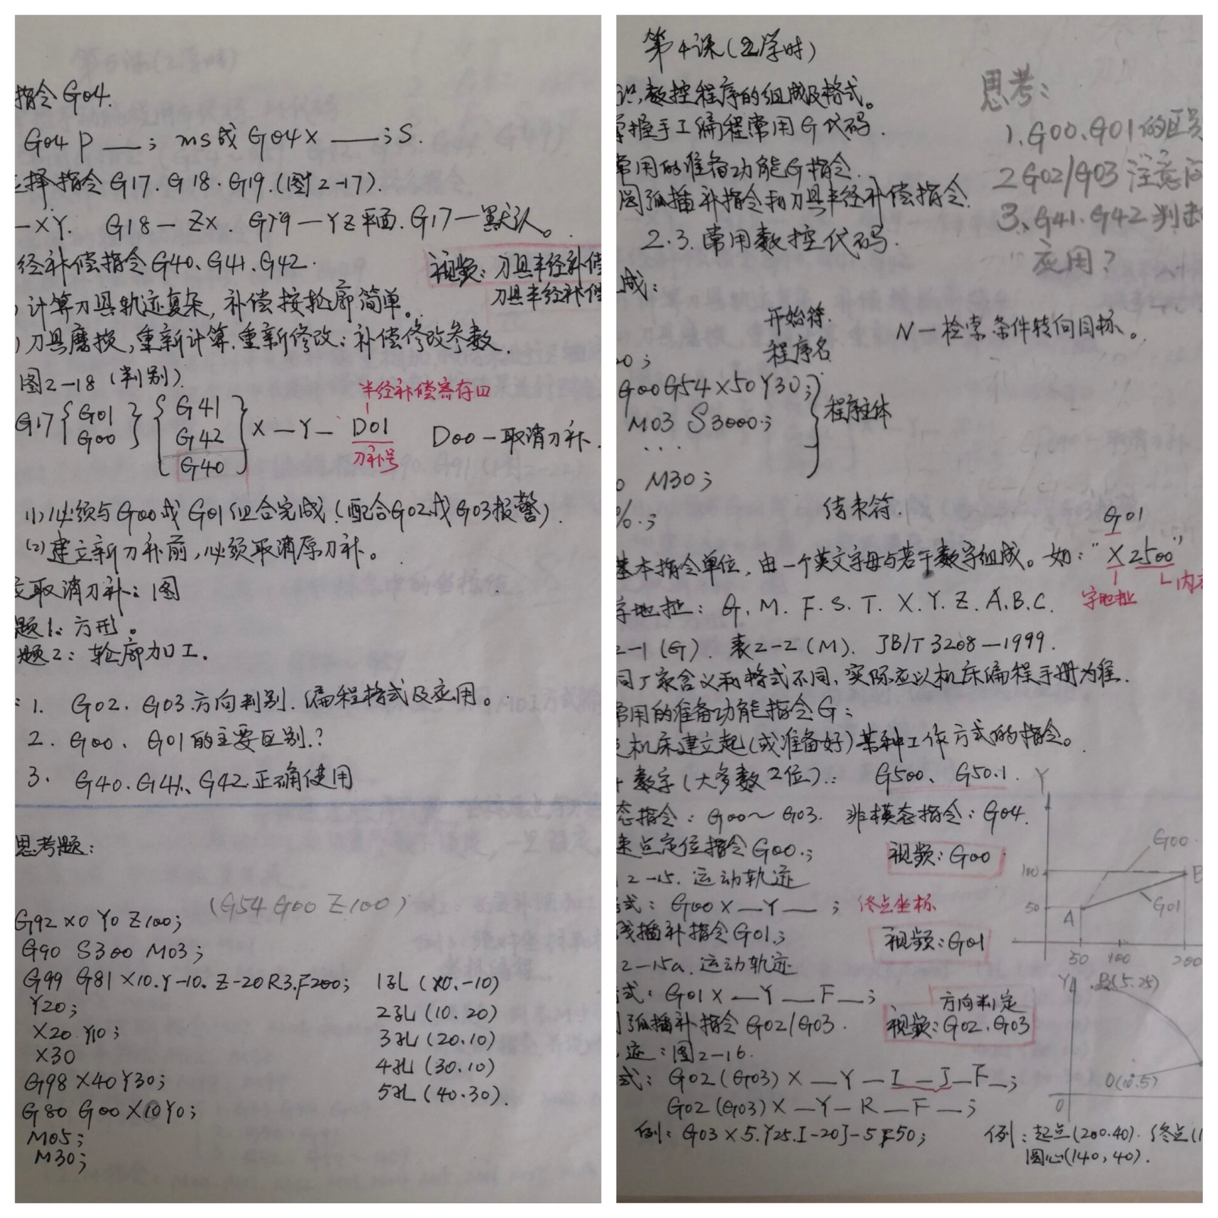 指令G04.
G04 P __; ms或 G04 X __; S.
择指令G17. G18. G19.(图2-17).
-XY. G18-ZX. G19-YZ平面. G17-默认。
径补偿指令G40、G41、G42.
视频: 刀具半径补偿
刀具半径补偿
计算刀具轨迹复杂, 补偿按轮廓简单。
刀具磨损, 重新计算. 重新修改; 补偿修改参数.
图2-18 (判别).
半径补偿寄存口
G17 { G01 G00 } { G41 G42 G40 } X - Y - D01 D00-取消刀补.
刀补号
(1)必须与G00或G01组合完成(配合G02或G03报警).
(2)建立新刀补前, 必须取消原刀补。
取消刀补: 1图
题1: 方形。
题2: 轮廓加工.
: 1. G02. G03方向判别. 编程格式及应用。
2. G00、G01的主要区别?
3. G40. G41、G42正确使用
思考题:
(G54 G00 Z100)
G92 X0 Y0 Z100;
G90 S300 M03;
G99 G81 X10. Y-10. Z-20 R3. F200; 1孔(X0.-10)
Y20; 2孔(10.20)
X20 Y10; 3孔(20.10)
X30 4孔(30.10)
G98 X40 Y30; 5孔(40.30).
G80 G00 X10 Y0;
M05;
M30;
第4课(2学时)
识, 数控程序的组成及格式。
掌握手工编程常用G代码.
常用的准备功能G指令.
圆弧插补指令和刀具半径补偿指令.
2.3. 常用数控代码.
思考:
1. G00. G01的区
2 G02/G03注意
3、G41. G42判
应用?
成:
开始符. N-检索.条件转向目标。
程序名
G00 G54 X50 Y30;
M03 S3000; 程序主体
...
M30;
%.; 结束符.
G01
基本指令单位, 由一个英文字母与若干数字组成。如: "X2500"
字地址 内
字地址: G. M. F. S. T. X. Y. Z. A. B. C.
2-1(G). 表2-2(M). JB/T 3208-1999.
同厂家含义和格式不同, 实际应以机床编程手册为准.
常用的准备功能指令G:
机床建立起(或准备好)某种工作方式的指令。
数字(大多数2位).: G500、G50.1.
态指令: G00~G03. 非模态指令: G04.
速点定位指令G00.; 视频: G00
2-15. 运动轨迹
式: G00 X __ Y __; 终点坐标
线插补指令G01.; 视频: G01
2-15a. 运动轨迹
式: G01 X __ Y __ F __;
弧插补指令G02/G03. 方向判定
视频: G02. G03
迹: 图2-16.
式: G02(G03) X __ Y __ I __ J __ F __;
G02(G03) X __ Y __ R __ F __;
例: G03 X5. Y25. I-20 J-5 F50; 例: 起点(200.40). 终点(1
圆心(140, 40).
Y
G00
100
B
50
A
G01
50 100 200
Y
B(5.25)
O(10.5)
0